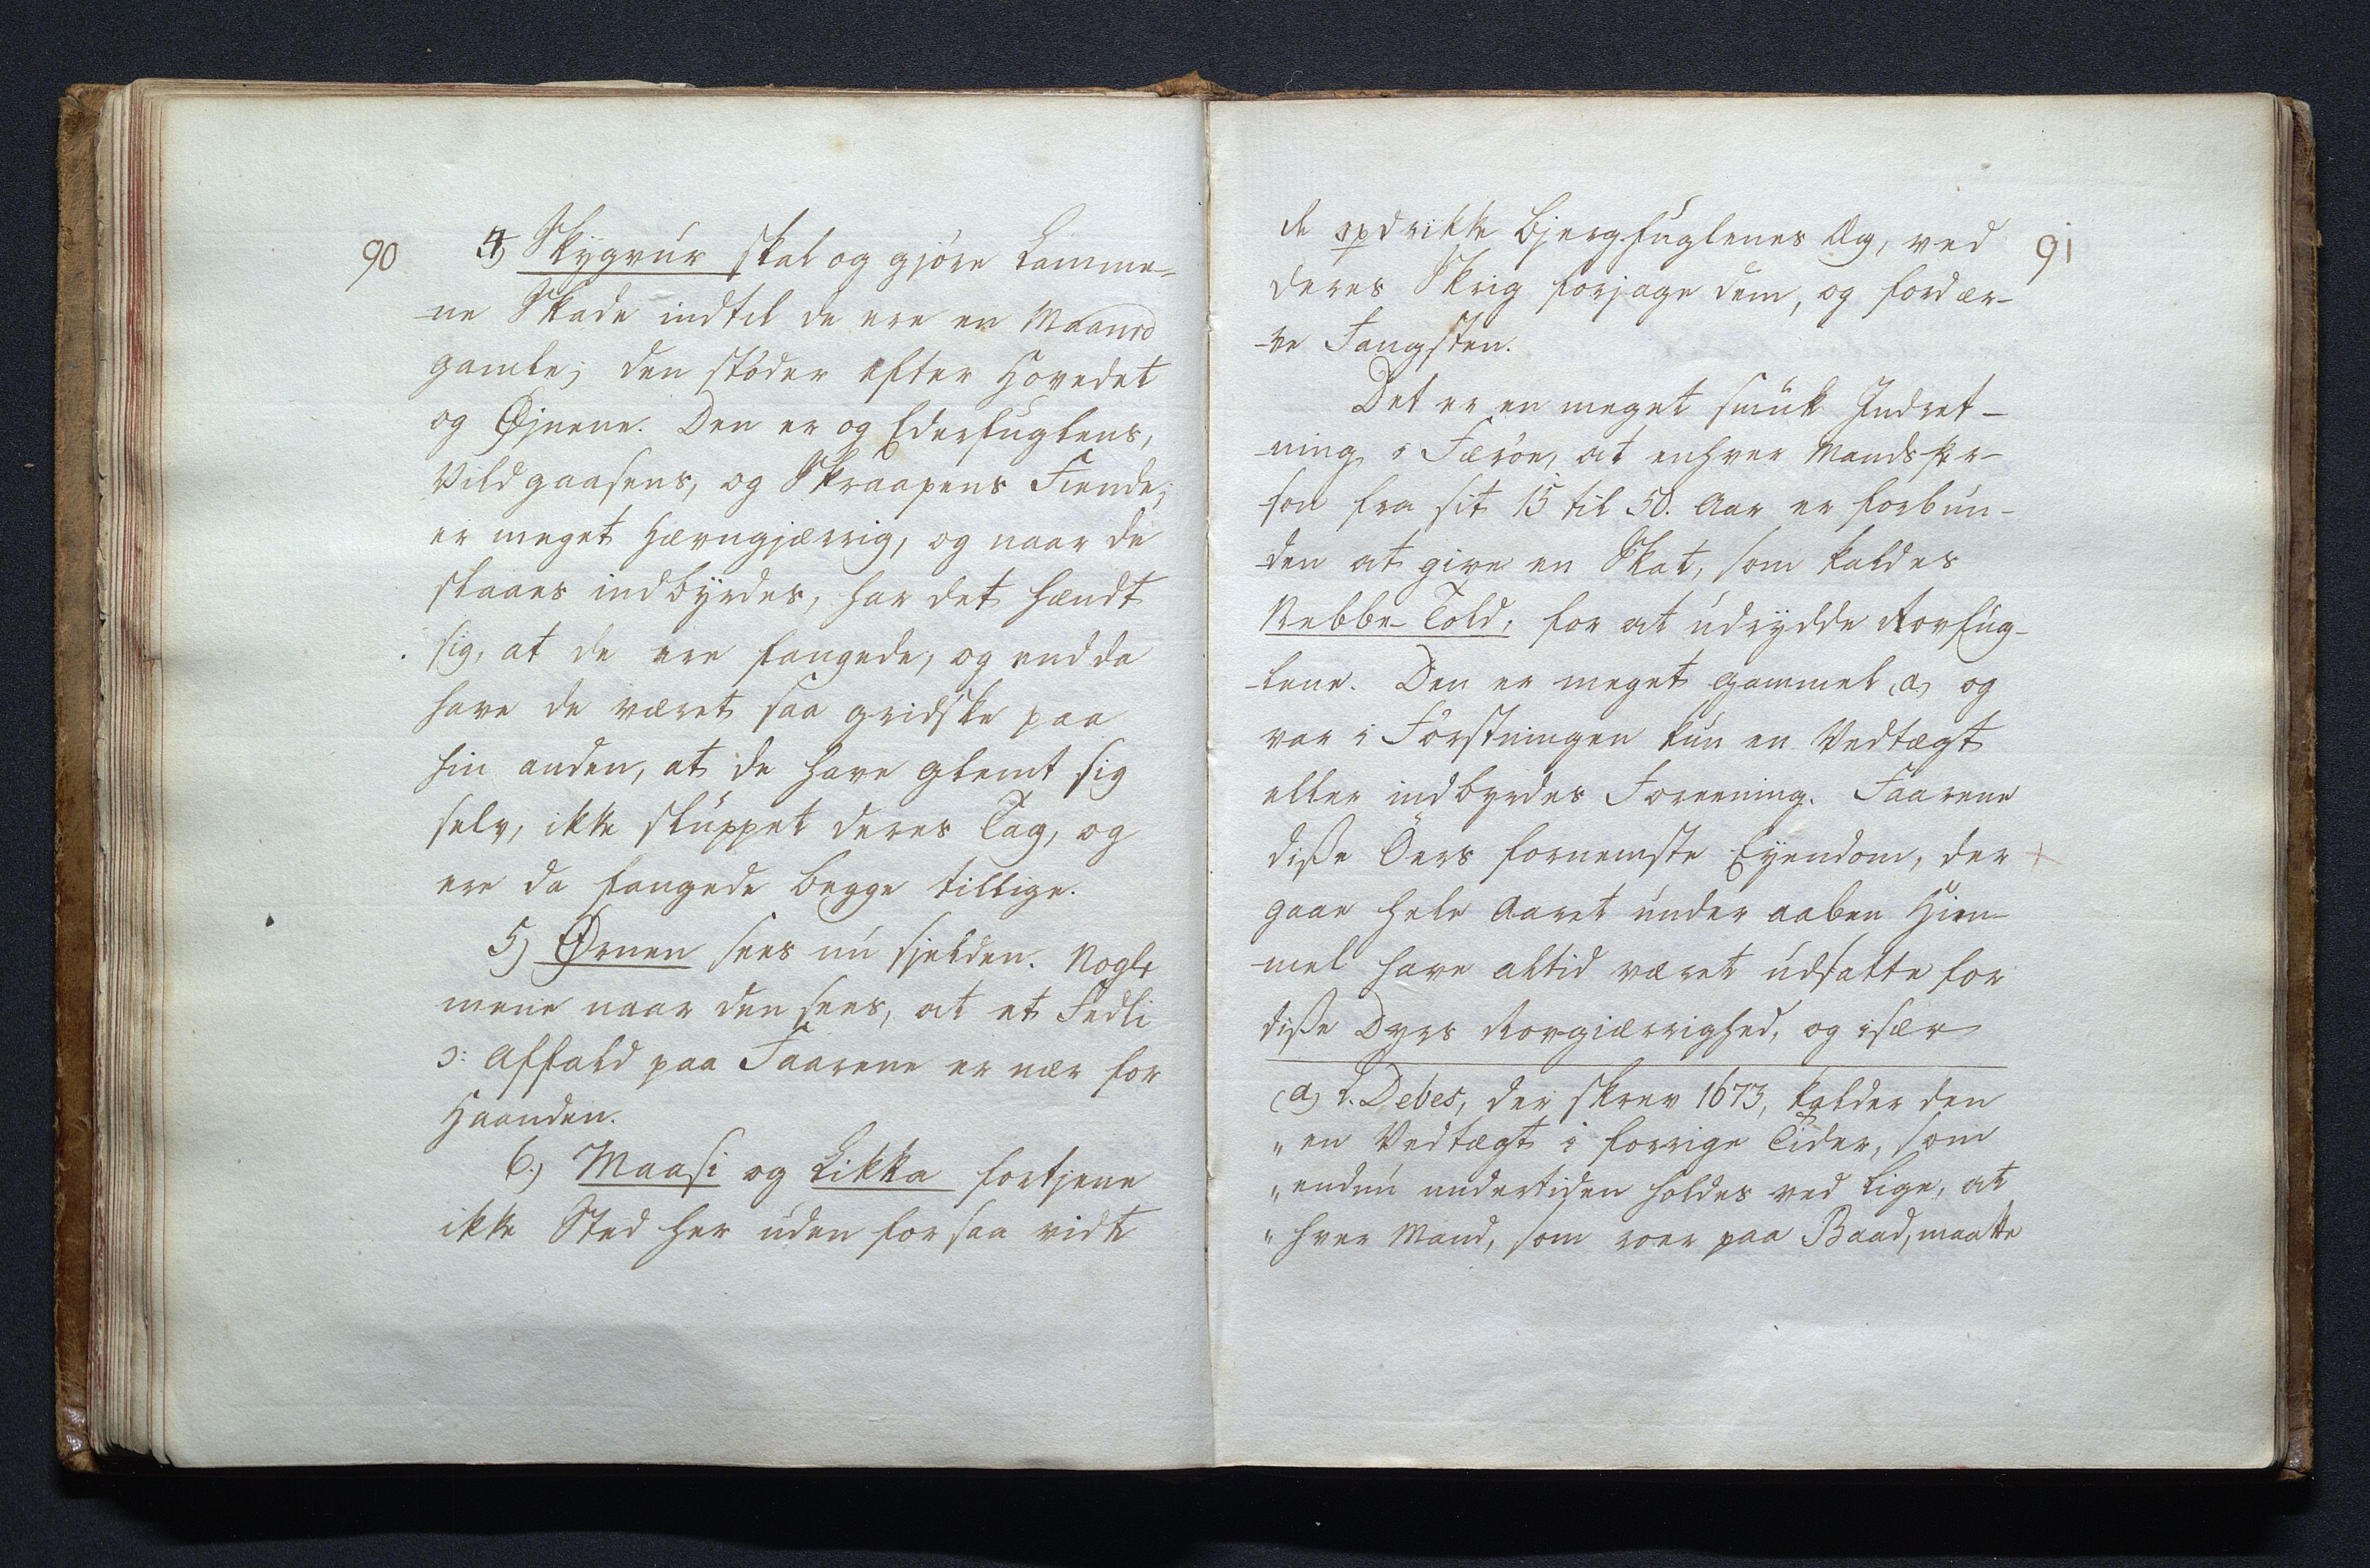 90
4) Skygvur skal og gjöre Lamme-
-ne Skade indtil de ere en Maaned
gamle; den stöder efter Hovedet
og Øjnene. Den er og Ederfuglens,
Vildgaasens, og Skraapens Fiende;
er meget Hævngjærrig, og naar de
slaaes indbyrdes, har det hændt
sig, at de ere fangede, og endda
have de været saa gridske paa
hin anden, at de have glemt sig
selv, ikke sluppet deres Tag, og
ere da fangede begge tillige.
5) Ørnen sees nu sjelden. Nogle
mene naar den sees, at et Fedli
ɔ: Affald paa Faarene er nær for
Haanden.
6.) Maasi og Likka fortjene
ikke Sted her uden for saa vidt
91
de opdrikke Bjergfuglenes Æg, ved
deres Skrig forjage dem, og fordær-
-ve Fangsten.
Det er en meget smuk Indret-
-ning i Færöe, at enhver Mandsper-
-son fra sit 15 til 50. Aar er forbun-
-den at give en Skat, som kaldes
Nebbe-Told, for at udrydde Rovfug-
-lene. Den er meget gammel (a) og
var i Förstningen kun en Vedtægt
eller indbyrdes Foreening. Faarene
disse Öers fornemste Eyendom, der +
gaae hele Aaret under aaben Him-
-mel have altid været udsatte for
disse Dyrs Rovgiærrighed, og især
(a) L. Debes, der skrev 1673, kalder den
„ en Vedtægt i forrige Tider, som
„ endnu undertiden holdes ved lige, at
„ hver Mand, som roer paa Baad, maatte